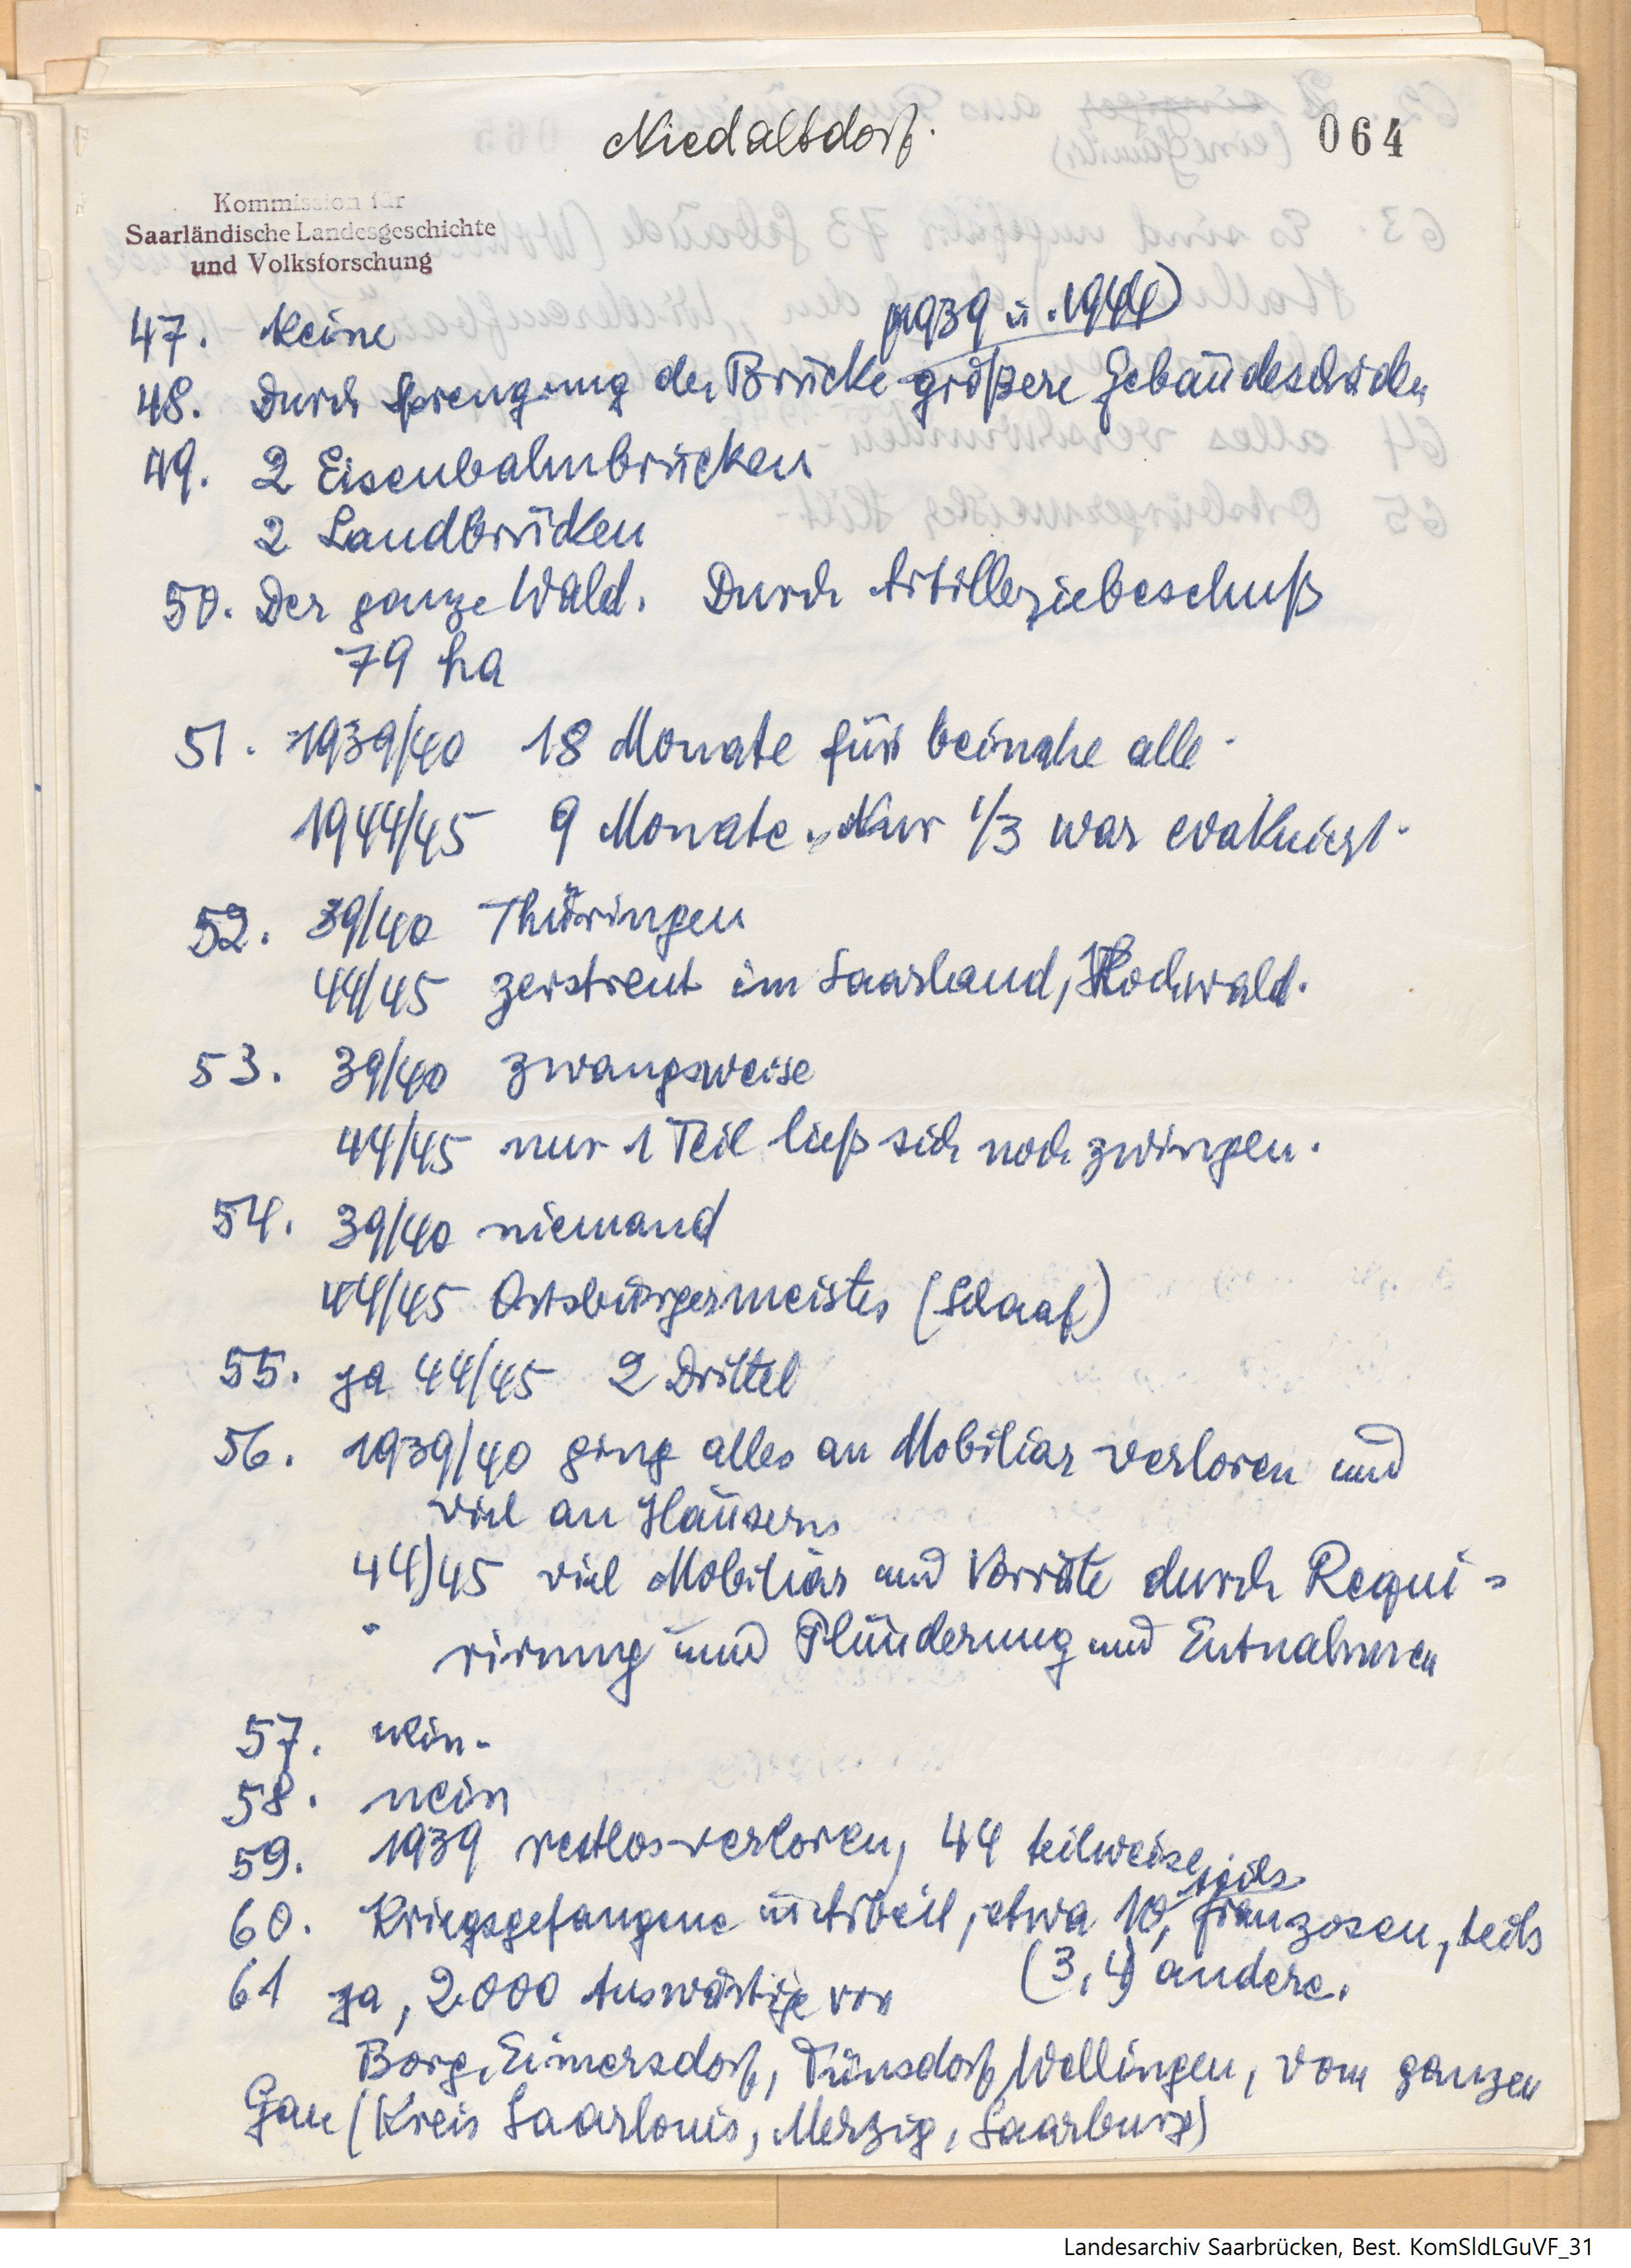 Niedaltdorf.
064
Kommission für
Saarländische Landesgeschichte
und Volksforschung
47. Keine
(1939 u. 1944)
48. Durch Sprengung der Brücke größere Gebäudeschäden
49. 2 Eisenbahnbrücken
2 Landbrücken
50. Der ganze Wald. Durch Artilleriebeschuß
79 ha
51. 1939/40 18 Monate für beinahe alle.
1944/45 9 Monate. Nur 1/3 war evakuiert.
52. 39/40 Thüringen
44/45 zerstreut im Saarland, Hochwald.
53. 39/40 zwangsweise
44/45 nur 1 Teil ließ sich noch zwingen.
54. 39/40 niemand
44/45 Ortsbürgermeister (Schaaf)
55. ja 44/45 2 Drittel
56. 1939/40 ging alles an Mobiliar verloren und
viel an Häusern
44/45 viel Mobiliar und Vorräte durch Requi-
rirung und Plünderung und Entnahmen
57. nein.
58. nein
59. 1939 restlos verloren, 44 teilweise
60. Kriegsgefangene, etwa 10, teils Franzosen, teils
(3,4) andere.
61 ja, 2000 Auswärtige von
Borg, Eimersdorf, Tünsdorf, Wellingen, vom ganzen
Gau (Kreis Saarlouis, Merzig, Saarburg)
Landesarchiv Saarbrücken, Best. KomSldLGuVF_31